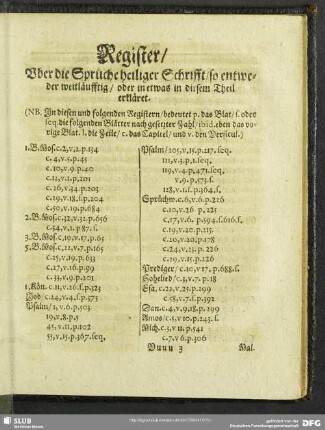 Register/
Vber die Sprüche heiliger Schrifft/so entwe-
der weitläufftig/ oder in etwas in diesem Theil
erkläret.
(NB. In diesen und folgenden Registern/bedeutet p. das Blat/ f. oder
seq. die folgenden Blätter nach gesetzter Zahl/ ibid. eben das vo-
rige Blat. l. die Zeile/ c. das Capitel/ und v. den Versicul.)
1. B. Mos. c.2, v.2. p.134
c.4, v.5. p.45
c.10, v.9. p.40
c.11, v.1. p.201
c.16, v.34. p.203
c.19, v.18. i. p.204
c.50, v.19. p.684
2. B. Mos. c.12, v.32. p.656
c.34, v.1. p.87. f.
3. B. Mos. c.19, v.17. p.65
5. B. Mos. c.22, v.7. p.165
c.25, v.19. p.633
c.27, v.16. p.99
c.33, v.9. p.201
1. Kön. c.11, v.26. f. p.523
Job/c.14, v.4. f. p.373
Psalm/1, v.6. p.503
19, v.8. p.5
45, v.11. p.102
55, v.15. p.367. seq.
Psalm/105, v.15. p.217. seq.
111, v.3. p.1. seq.
119, v.4. p.471. seq.
v.9. p.573. f.
128, v.1. f. p.364. f.
Sprüchw. c.6, v.6. p.226
c.10, v.26 p.225
c.17, v.6. p.594. f. 616. f.
c.19, v.20. p.215
c.20, v.20. p.178
c.24, v.23. p.226
c.19, v.15. p.226
Prediger/c.10, v.17. p.688. f.
Hohelied/c.3, v.7. p.18
Esa. c.21, v.25. p.299
c.58, v.7. f. p.392
Dan. c.4, v.9. 18. p.299
Amos/c.5, v.10. p.243. f.
Mich. c.3, v.11. p.541
c.7, v.6. p.306
Vuuu 3
Mal.
SLUB
DFG